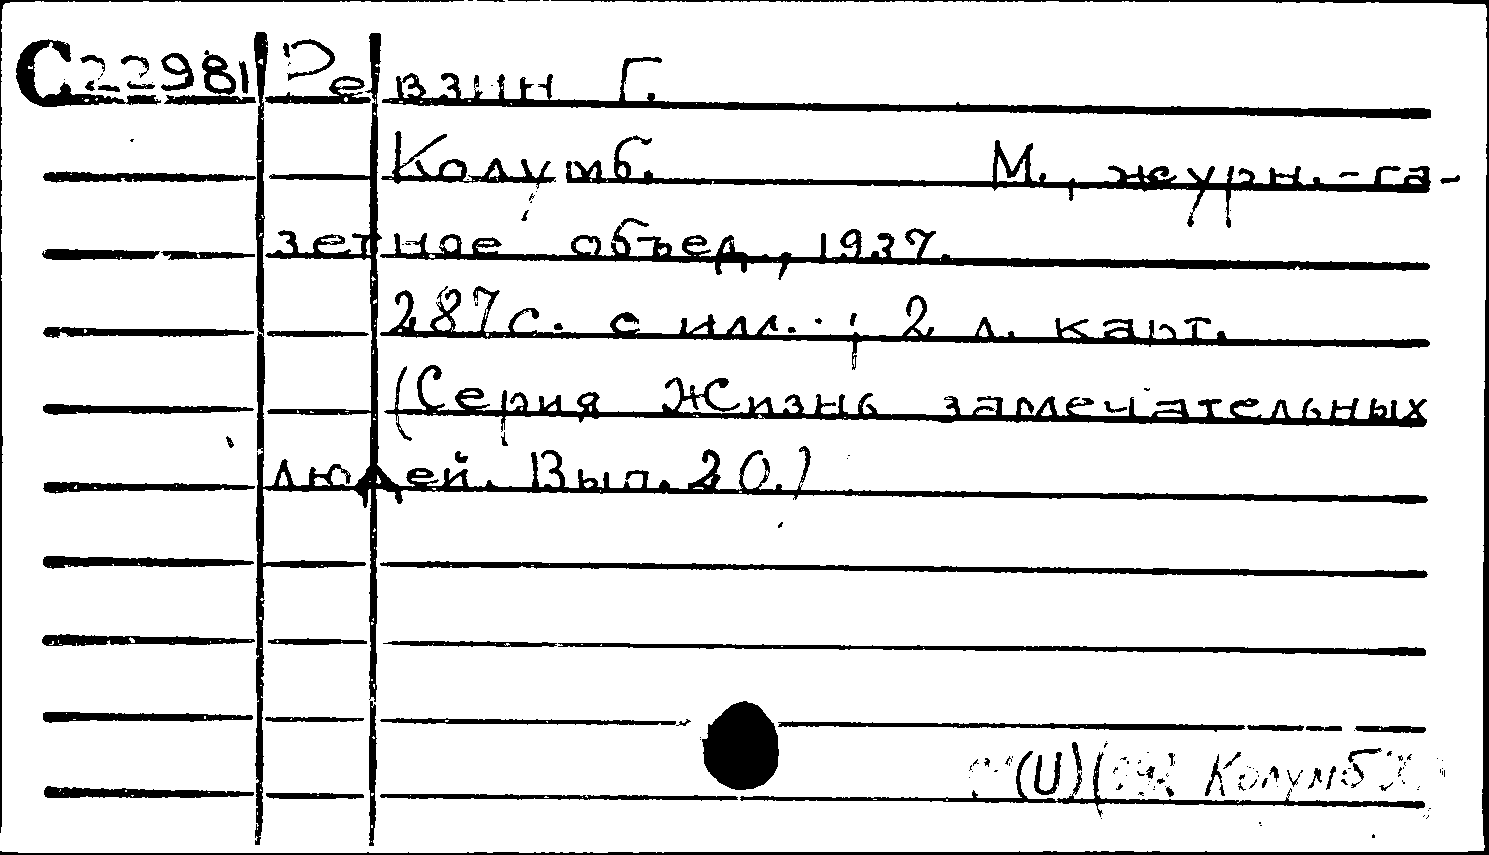 С22981 Ревзин Г.
Колумб. М., журн.-га-
зетное объед., 1937.
287с. с илл. ; 2 л. карт.
(Серия Жизнь замечательных
людей. Вып. 20.)
(U) Колумб Х.